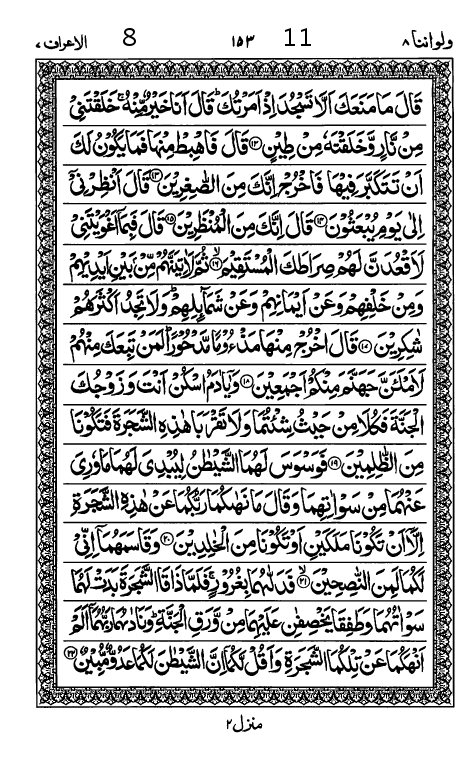 ولواننا ٨ 11 ١٥٣ 8 الاعراف ٧
قَالَ مَا مَنَعَكَ اَلَّا تَسْجُدَ اِذْ اَمَرْتُكَ ؕ قَالَ اَنَا خَيْرٌ مِّنْهُ ۚ خَلَقْتَنِيْ
مِنْ نَّارٍ وَّخَلَقْتَهٗ مِنْ طِيْنٍ ﴿۱۲﴾ قَالَ فَاهْبِطْ مِنْهَا فَمَا يَكُوْنُ لَكَ
اَنْ تَتَكَبَّرَ فِيْهَا فَاخْرُجْ اِنَّكَ مِنَ الصّٰغِرِيْنَ ﴿۱۳﴾ قَالَ اَنْظِرْنِيْۤ
اِلٰى يَوْمِ يُبْعَثُوْنَ ﴿۱۴﴾ قَالَ اِنَّكَ مِنَ الْمُنْظَرِيْنَ ﴿۱۵﴾ قَالَ فَبِمَاۤ اَغْوَيْتَنِيْ
لَاَقْعُدَنَّ لَهُمْ صِرَاطَكَ الْمُسْتَقِيْمَ ﴿ۙ۱۶﴾ ثُمَّ لَاٰتِيَنَّهُمْ مِّنْۢ بَيْنِ اَيْدِيْهِمْ
وَمِنْ خَلْفِهِمْ وَعَنْ اَيْمَانِهِمْ وَعَنْ شَمَآئِلِهِمْ ؕ وَلَا تَجِدُ اَكْثَرَهُمْ
شٰكِرِيْنَ ﴿۱۷﴾ قَالَ اخْرُجْ مِنْهَا مَذْءُوْمًا مَّدْحُوْرًا ؕ لَمَنْ تَبِعَكَ مِنْهُمْ
لَاَمْلَئَنَّ جَهَنَّمَ مِنْكُمْ اَجْمَعِيْنَ ﴿۱۸﴾ وَيٰۤاٰدَمُ اسْكُنْ اَنْتَ وَزَوْجُكَ
الْجَنَّةَ فَكُلَا مِنْ حَيْثُ شِئْتُمَا وَلَا تَقْرَبَا هٰذِهِ الشَّجَرَةَ فَتَكُوْنَا
مِنَ الظّٰلِمِيْنَ ﴿۱۹﴾ فَوَسْوَسَ لَهُمَا الشَّيْطٰنُ لِيُبْدِيَ لَهُمَا مَا وٗرِيَ
عَنْهُمَا مِنْ سَوْاٰتِهِمَا وَقَالَ مَا نَهٰىكُمَا رَبُّكُمَا عَنْ هٰذِهِ الشَّجَرَةِ
اِلَّاۤ اَنْ تَكُوْنَا مَلَكَيْنِ اَوْ تَكُوْنَا مِنَ الْخٰلِدِيْنَ ﴿۲۰﴾ وَقَاسَمَهُمَاۤ اِنِّيْ
لَكُمَا لَمِنَ النّٰصِحِيْنَ ﴿ۙ۲۱﴾ فَدَلّٰىهُمَا بِغُرُوْرٍ ۚ فَلَمَّا ذَاقَا الشَّجَرَةَ بَدَتْ لَهُمَا
سَوْاٰتُهُمَا وَطَفِقَا يَخْصِفٰنِ عَلَيْهِمَا مِنْ وَّرَقِ الْجَنَّةِ ؕ وَنَادٰىهُمَا رَبُّهُمَاۤ اَلَمْ
اَنْهَكُمَا عَنْ تِلْكُمَا الشَّجَرَةِ وَاَقُلْ لَّكُمَاۤ اِنَّ الشَّيْطٰنَ لَكُمَا عَدُوٌّ مُّبِيْنٌ ﴿۲۲﴾
منزل ٢